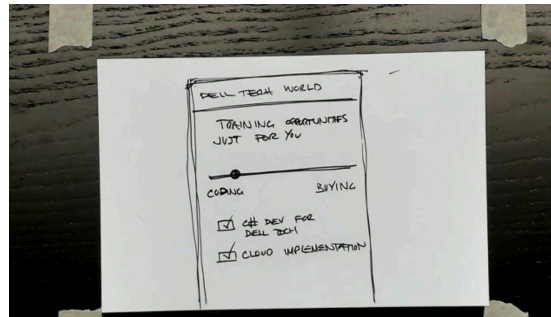 DELL TECH WORLD
TRAINING OPPORTUNITIES
JUST FOR YOU
CODING BUYING
C# DEV FOR
DELL TECH
CLOUD IMPLEMENTATION